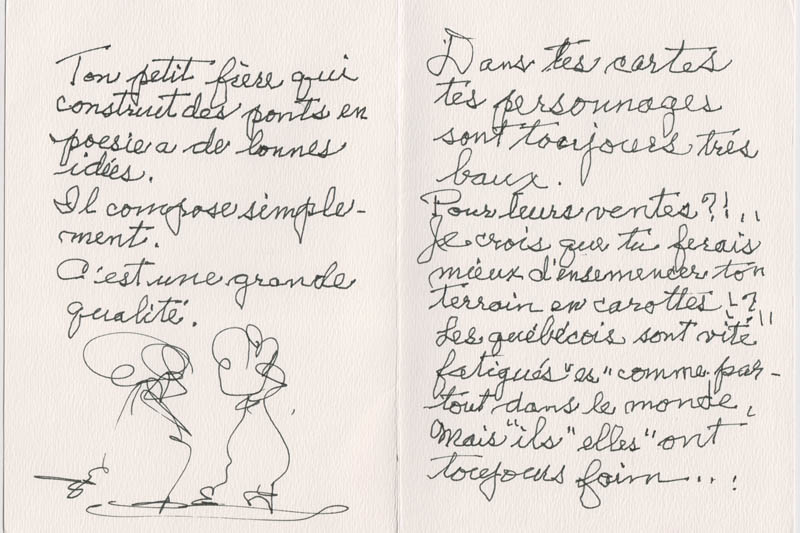 Ton petit frère qui
construit des ponts en
poesie a de bonnes
idées.
Il compose simple-
ment.
C'est une grande
qualité.
Dans tes cartes
tes personnages
sont toujours très
baux.
Pour leurs ventes?!..
Je crois que tu ferais
mieux d'ensemencer ton
terrain en carottes!?
Les québécois sont vite"
fatigués "es" comme par-
tout dans le monde,
mais "ils" elles" ont
toujours faim...!